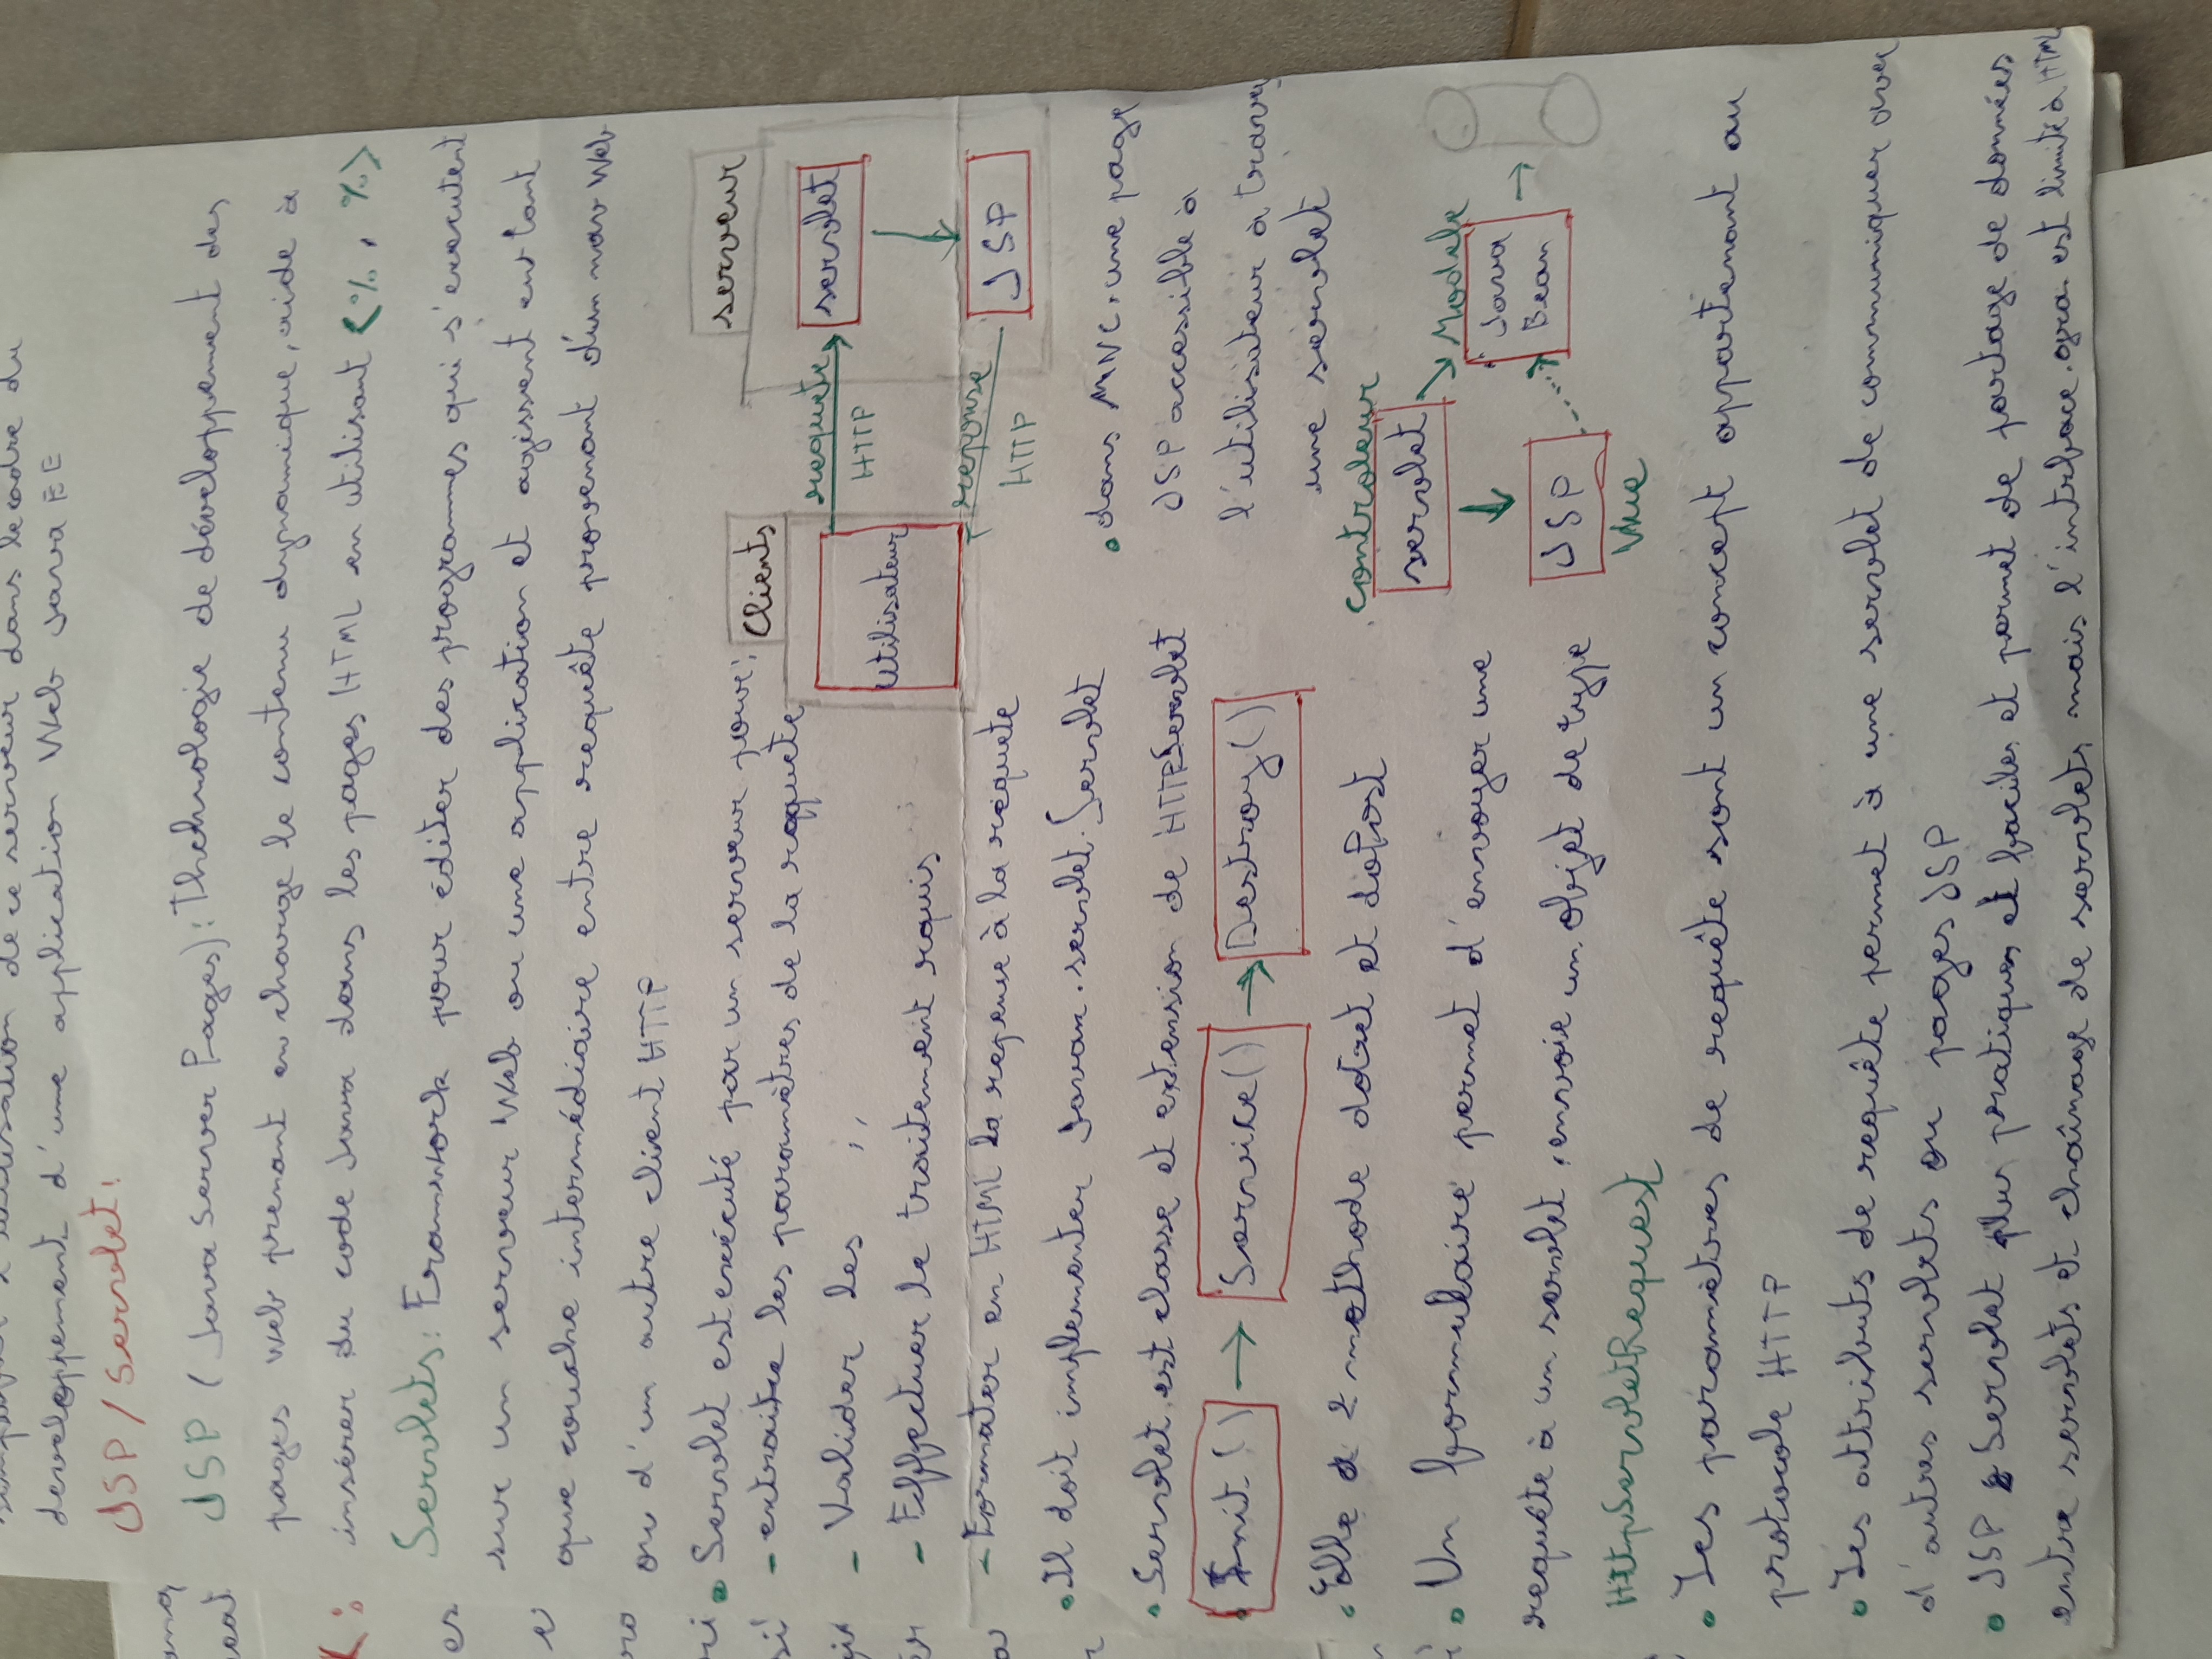 l'utilisation de ce serveur dans le cadre du
developpement d'une application Web Java EE
JSP / Servlet:
JSP (Java Server Pages): Thchnologie de développement des
pages web prenant en charge le contenu dynamique, aide à
insérer du code Java dans les pages HTML en utilisant <%, %>
Servlets: Framework pour éditer des programmes qui s'executent
sur un serveur Web ou une application et agissent en tant
que couche intermédiaire entre requête provenant d'un nav Web
ou d'un autre client HTTP
• Servlet est exécuté par un serveur pour:
- extraitre les paramètres de la requete
- Valider les ,,
- Effectuer le traitement rquis
- Formater en HTML la reponse à la requete
Clients
serveur
utilisateur
requete
HTTP
servlet
reponse
HTTP
JSP
• Il doit implementer Javax.servlet.Servlet
• Servlet est classe et extension de HTTPServlet
• Init() → Service() → Destroy()
• Elle a 2 methode doGet et doPost
• Un formulaire permet d'envoyer une
requête à un servlet, envoie un objet de type
HttpServletRequest
• dans MVC, une page
JSP accessible à
l'utilisateur à travers
une servlet
controleur
servlet
Modele
Java
Bean
JSP
Vue
• Les paramètres de requête sont un concept appartenant au
protocole HTTP
• Les attributs de requête permet à une servlet de communiquer avec
d'autres servlets ou pages JSP
• JSP & Servlet plus pratiques et faciles et permet de partage de données
entre servlets et chaînage de servlets mais l'intrface.gra. est limité à HTML